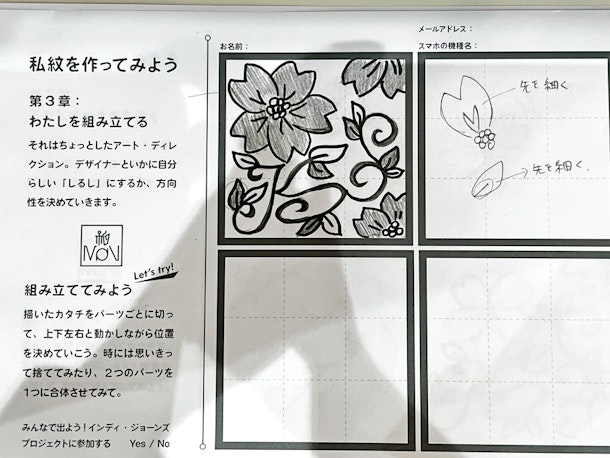 私紋を作ってみよう
第3章：
わたしを組み立てる
それはちょっとしたアート・ディレ
クション。デザイナーといかに自分
らしい「しるし」にするか、方向
性を決めていきます。
Let's try!
組み立ててみよう
描いたカタチをパーツごとに切っ
て、上下左右と動かしながら位置
を決めていこう。時には思いきっ
て捨ててみたり、2つのパーツを
1つに合体させてみて。
みんなで出よう！インディ・ジョーンズ
プロジェクトに参加する Yes / No
お名前：
メールアドレス：
スマホの機種名：
先を細く
先を細く.